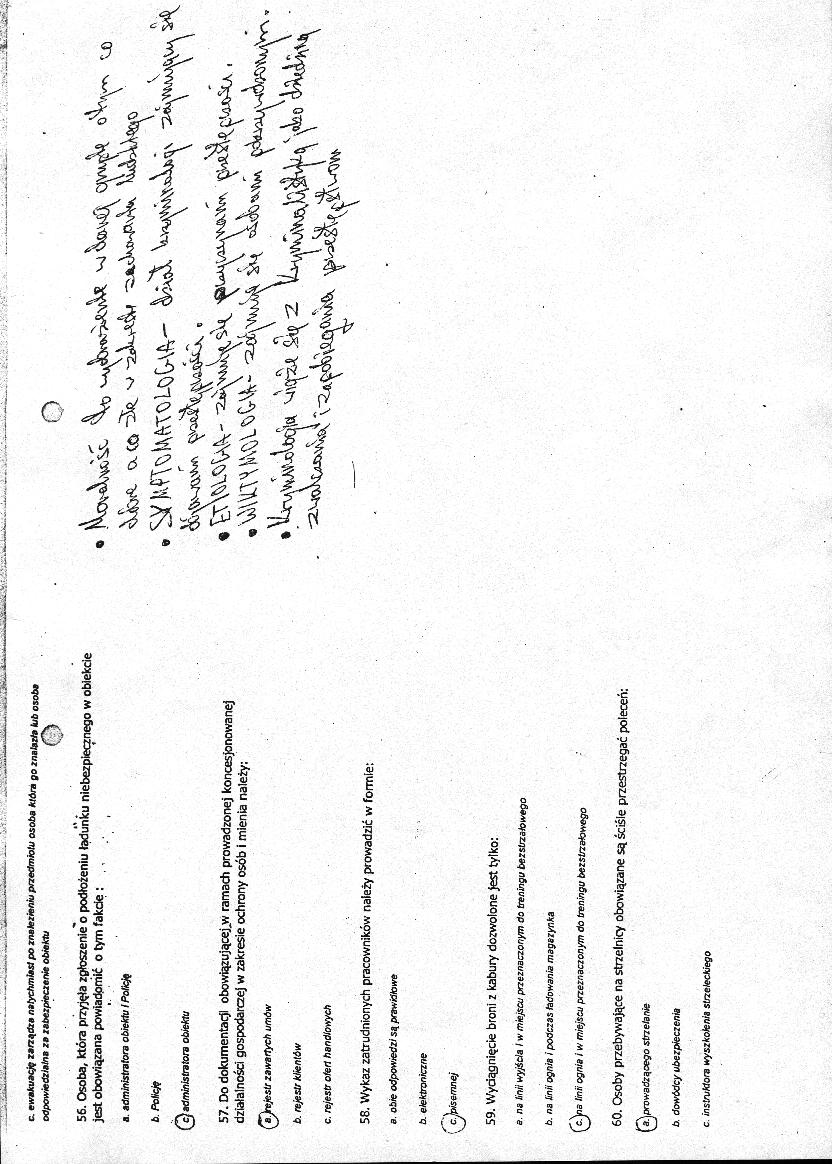 c. ewakuację zarządza natychmiast po znalezieniu przedmiotu osoba która go znalazła lub osoba
odpowiedzialna za zabezpieczenie obiektu
56. Osoba, która przyjęła zgłoszenie o podłożeniu ładunku niebezpiecznego w obiekcie
jest obowiązana powiadomić o tym fakcie :
a. administratora obiektu i Policję
b. Policję
c. administratora obiektu
57. Do dokumentacji obowiązującej w ramach prowadzonej koncesjonowanej
działalności gospodarczej w zakresie ochrony osób i mienia należy:
a. rejestr zawartych umów
b. rejestr klientów
c. rejestr ofert handlowych
58. Wykaz zatrudnionych pracowników należy prowadzić w formie:
a. obie odpowiedzi są prawidłowe
b. elektroniczne
c. pisemnej
59. Wyciągnięcie broni z kabury dozwolone jest tylko:
a. na linii wyjścia i w miejscu przeznaczonym do treningu bezstrzałowego
b. na linii ognia i podczas ładowania magazynka
c. na linii ognia i w miejscu przeznaczonym do treningu bezstrzałowego
60. Osoby przebywające na strzelnicy obowiązane są ściśle przestrzegać poleceń:
a. prowadzącego strzelanie
b. dowódcy ubezpieczenia
c. instruktora wyszkolenia strzeleckiego
• Moralność to wyobrażenie w danej grupie o tym co
dobre a co złe w zakresie zachowania ludzkiego
• SYMPTOMATOLOGIA – dział kryminologi zajmujący się
objawami przestępczości.
• ETIOLOGIA – zajmuje się przyczynami przestępczości.
• WIKTYMOLOGIA – zajmuje się osobami pokrzywdzonymi.
• Kryminologia wiąże się z kryminalistyką jako dziedziną
zwalczania i zapobiegania przestępstwom